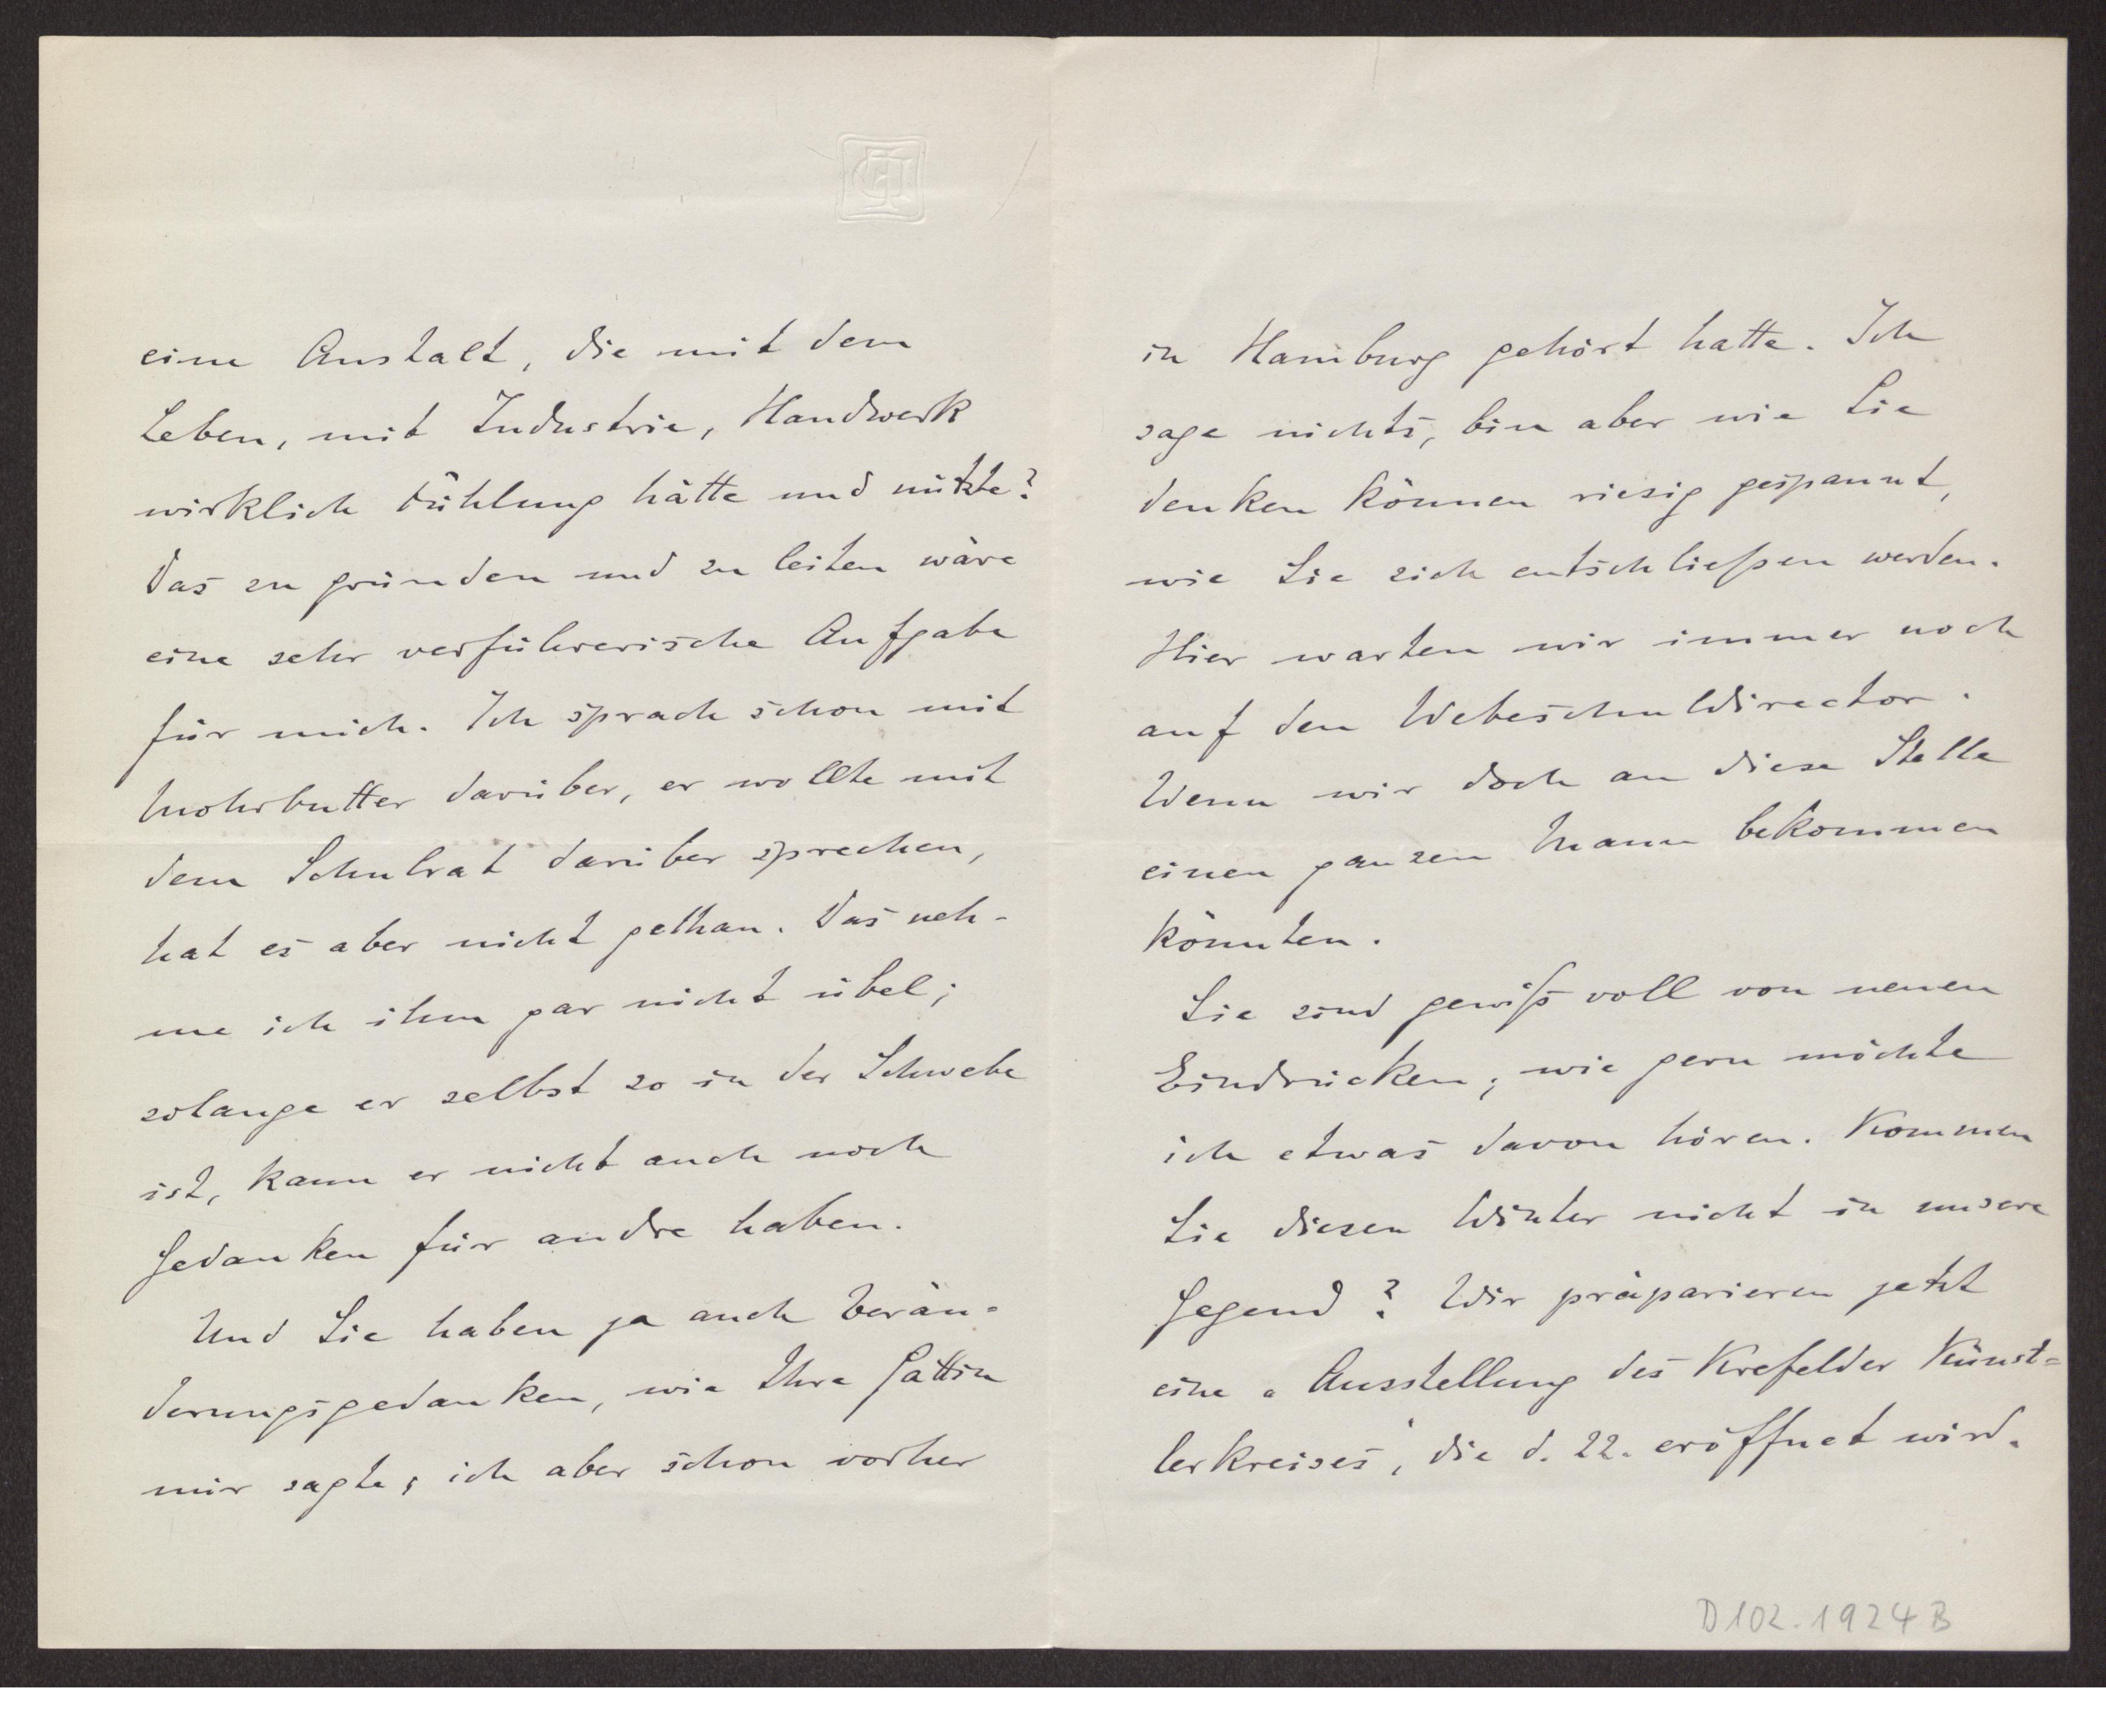 eine Anstalt, die mit dem
Leben, mit Industrie, Handwerk
wirklich Fühlung hätte und nützte?
Das zu gründen und zu leiten wäre
eine sehr verführerische Aufgabe
für mich. Ich sprach schon mit
Mohrbutter darüber, er wollte mit
dem Schulrat darüber sprechen,
hat es aber nicht gethan. Das neh-
me ich ihm gar nicht übel;
solange er selbst so in der Schwebe
ist, kann er nicht auch noch
Gedanken für andre haben.
Und Sie haben ja auch Verän=
derungsgedanken, wie Ihre Gattin
mir sagte, ich aber schon vorher
in Hamburg gehört hatte. Ich
sage nichts, bin aber wie Sie
denken können riesig gespannt,
wie Sie sich entschließen werden.
Hier warten wir immer noch
auf den Webeschuldirector.
Wenn wir doch an diese Stelle
einen ganzen Mann bekommen
könnten.
Sie sind gewiß voll von neuen
Eindrücken; wie gern möchte
ich etwas davon hören. Kommen
Sie diesen Winter nicht in unsere
Gegend? Wir präparieren jetzt
eine „Ausstellung des Krefelder Künst=
lerkreises", die d. 22. eröffnet wird.
D 102.1924 B